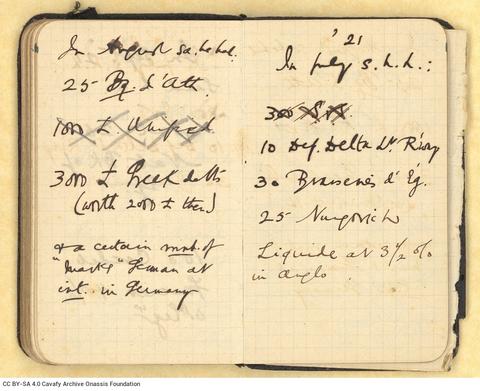 In August s. h. had
25 Bq. d'Ath.
1000 £ Unified
3000 £ Greek debts
(worth 2000 £ then)
& a certain
"Marks" German at
int. in Germany
'21
In July s. h. h.:
300
10 Def. Delta
30 Brasseries d'Ég.
25
Liquide at 3 1/2 %
in Anglo.
CC BY-SA 4.0 Cavafy Archive Onassis Foundation